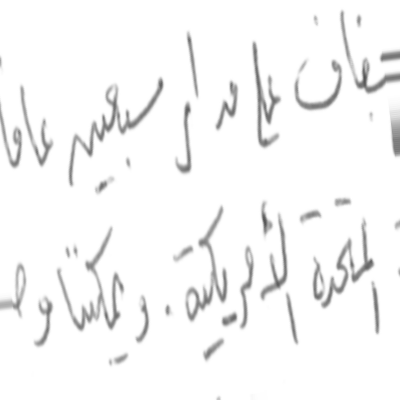 على مدار سبعين عاما
المتحدة الأمريكية. ويمكننا